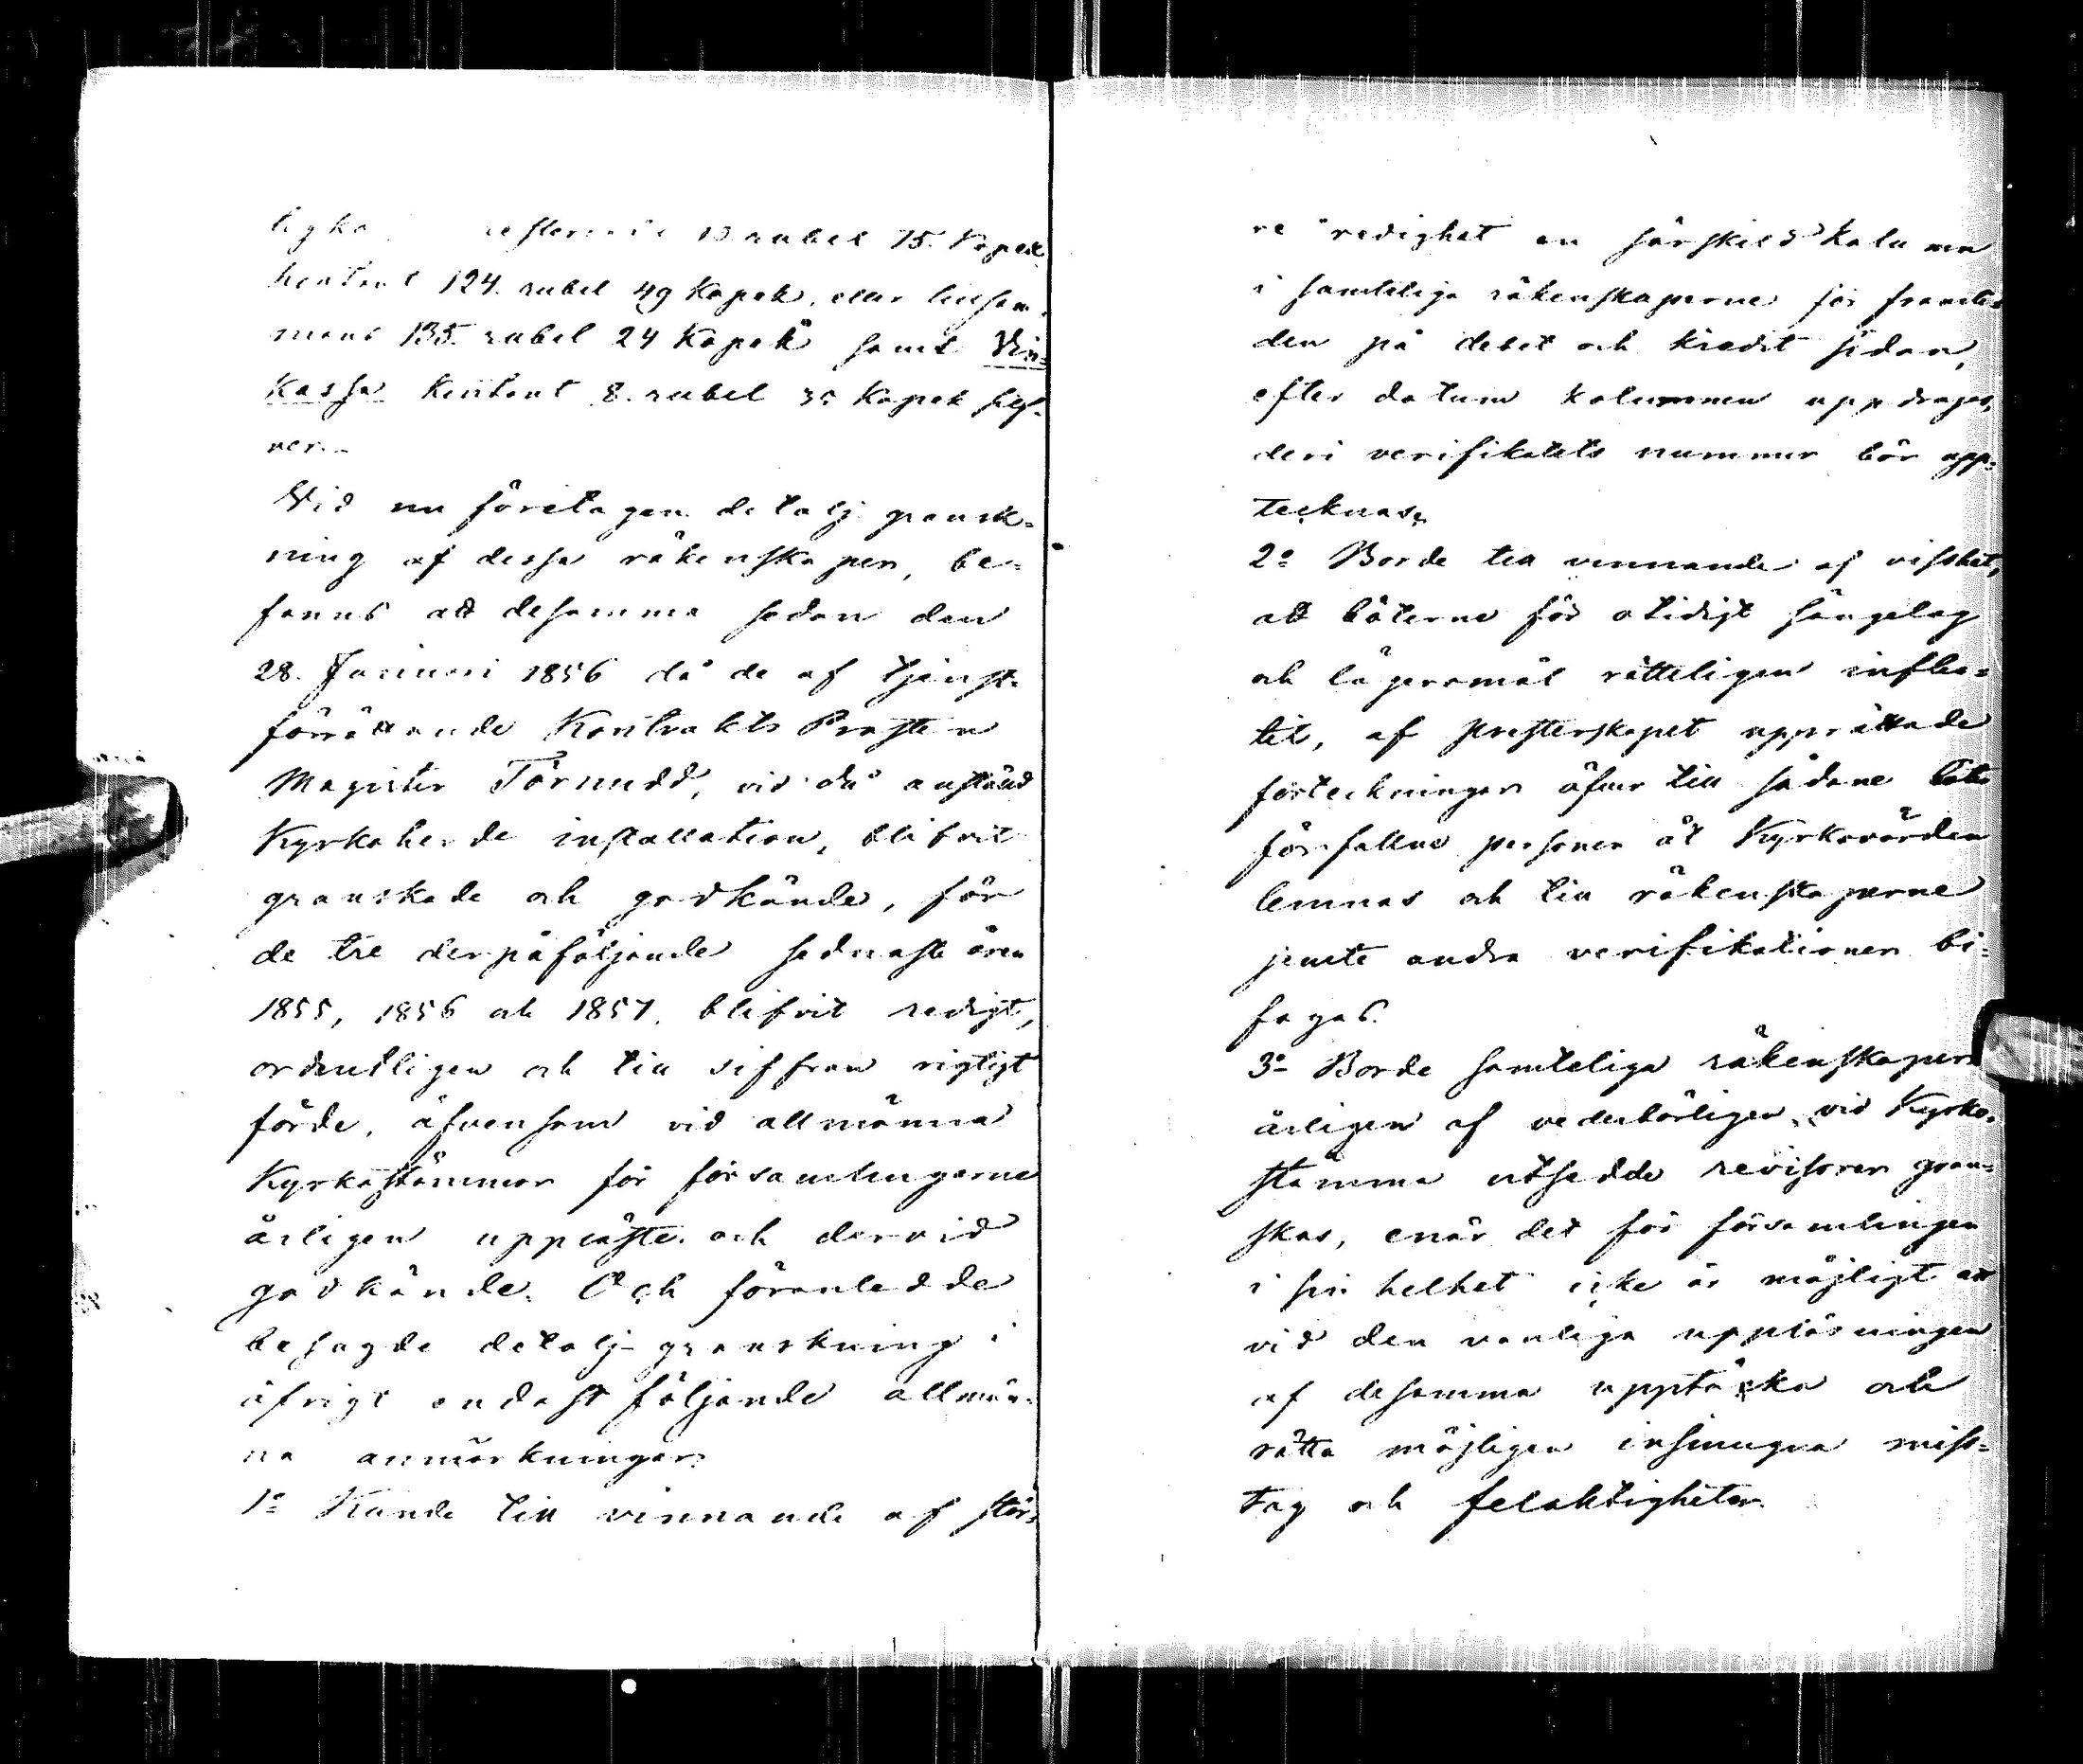 resterande 10 rubel 75. Kopek
kontant 124. rubel 49 Kopek, eller tillsam-
mans 135. rubel 24 Kopek samt Vin-
Kassa Kontant 8. rubel 35 Kopek silf-
ver. -
Vid nu företagen detalj gransk-
ning af dessa räkenskaper, be-
fanns att desamma sedan den
28. Januari 1856 då de af tjenst-
förrättande Kontrakts Prosten
Magister Törnudd, vid då anstäld
Kyrkoherde installation, blifvit
granskade och godkände, för
de tre derpåföljande sednaste åren
1855, 1856 och 1857. blifvit redigt,
ordentligen och till siffran rigtigt
förde, äfvensom vid allmänna
Kyrkostämmor för församlingarne
årligen uppläste och dervid
godkände. Och föranledde
besagde detalj-granskning i
öfrigt endast följande allmän-
na anmärkningar:
1º Kunde till vinnande af stör-
re redighet en särskild kolumn
i samteliga räkenskaperne för framti-
den på debet och kredit sidan,
efter datum kolumnen uppdragas,
deri verifikatets nummer bör upp-
tecknas.
2º Borde till vinnande af visshet,
att böterne för otidigt sängelag
och lägersmål rätteligen influ-
tit, af presterskapet upprättade
förteckningar öfver till sådane böter
förfallne personer åt Kyrkovärden
lemnas och till räkenskaperne
jemte andra verifikationer bi-
fogas.
3º Borde samteliga räkenskaper
årligen af vederbörligen vid Kyrko-
stämma utsedde revisorer gran-
skas, enär det för församlingen
i sin helhet icke är möjligt att
vid den vanliga uppläsningen
af desamma upptäcka och
rätta möjligen insmugna miss-
tag och felaktigheter.